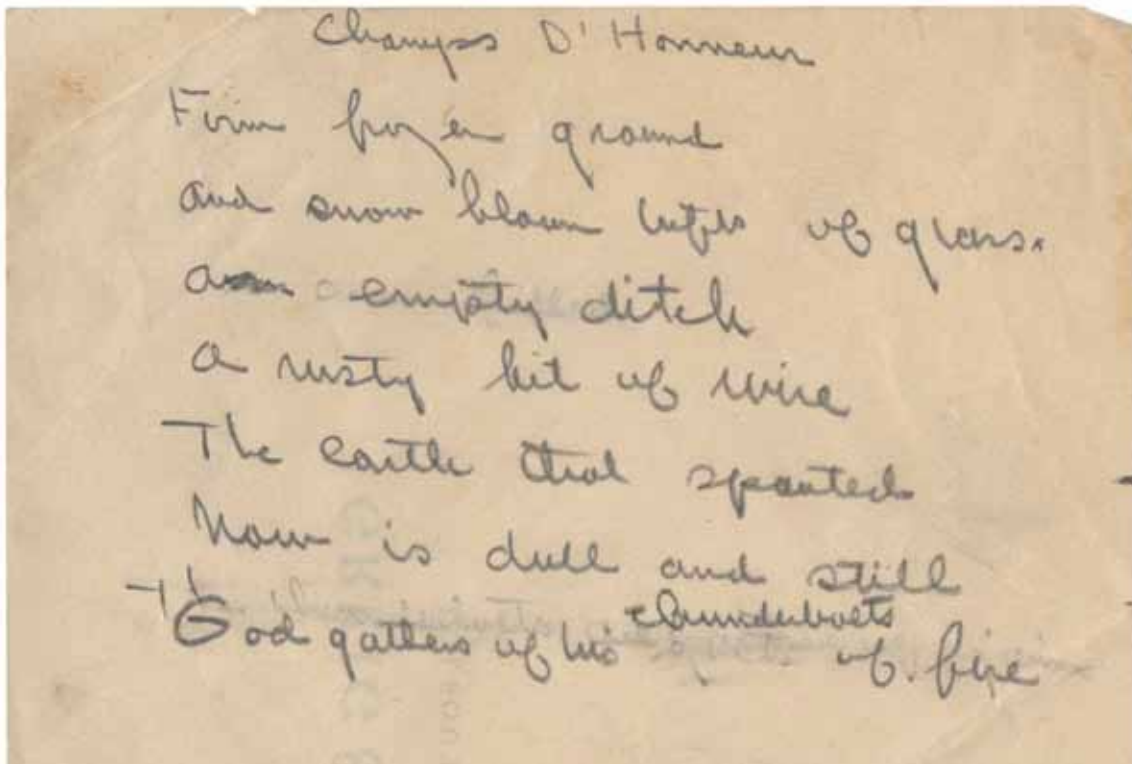 Champs D'Honneur
Firm frozen ground
and snow blown tufts of grass.
an empty ditch
a rusty bit of wire
The earth that spouted
Now is dull and still
thunderbolts
God gathers up his of fire